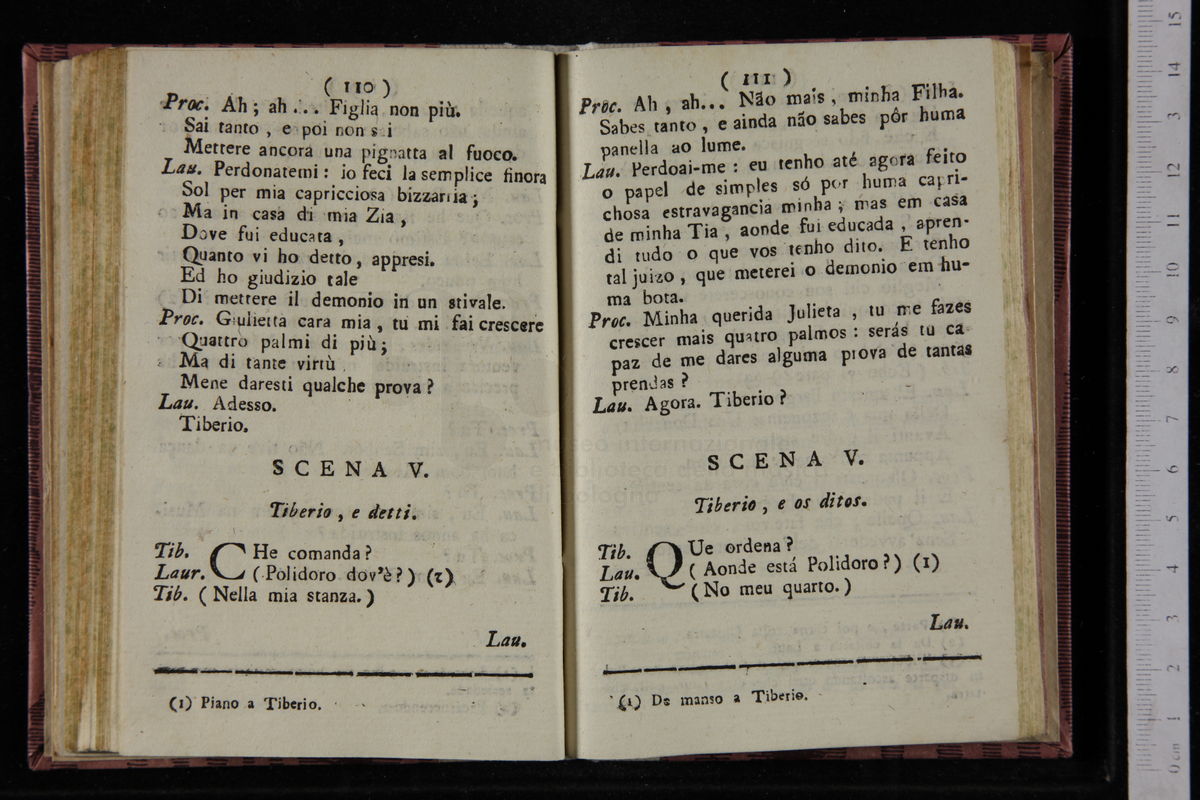 ( 110 )
Proc. Ah; ah... Figlia non più.
Sai tanto, e poi non s i
Mettere ancora una pignatta al fuoco.
Lau. Perdonatemi: io feci la semplice finora
Sol per mia capricciosa bizzarria;
Ma in casa di mia Zia,
Dove fui educata,
Quanto vi ho detto, appresi.
Ed ho giudizio tale
Di mettere il demonio in un stivale.
Proc. Giulietta cara mia, tu mi fai crescere
Quattro palmi di più;
Ma di tante virtù
Mene daresti qualche prova?
Lau. Adesso.
Tiberio.
SCENA V.
Tiberio, e detti.
Tib. CHe comanda?
Laur. (Polidoro dov'è?) (1)
Tib. (Nella mia stanza.)
Lau.
(1) Piano a Tiberio.
( 111 )
Proc. Ah, ah... Não mais, minha Filha.
Sabes tanto, e ainda não sabes pôr huma
panella ao lume.
Lau. Perdoai-me: eu tenho até agora feito
o papel de simples só por huma capri-
chosa estravagancia minha; mas em casa
de minha Tia, aonde fui educada, apren-
di tudo o que vos tenho dito. E tenho
tal juizo, que meterei o demonio em hu-
ma bota.
Proc. Minha querida Julieta, tu me fazes
crescer mais quatro palmos: serás tu ca-
paz de me dares alguma prova de tantas
prendas?
Lau. Agora. Tiberio?
SCENA V.
Tiberio, e os ditos.
Tib. QUe ordena?
Lau. (Aonde está Polidoro?) (1)
Tib. (No meu quarto.)
Lau.
(1) De manso a Tiberio.
museo internazionale
e biblioteca della
di bologna
15
14
13
12
11
10
9
8
7
6
5
4
3
2
1
0 cm